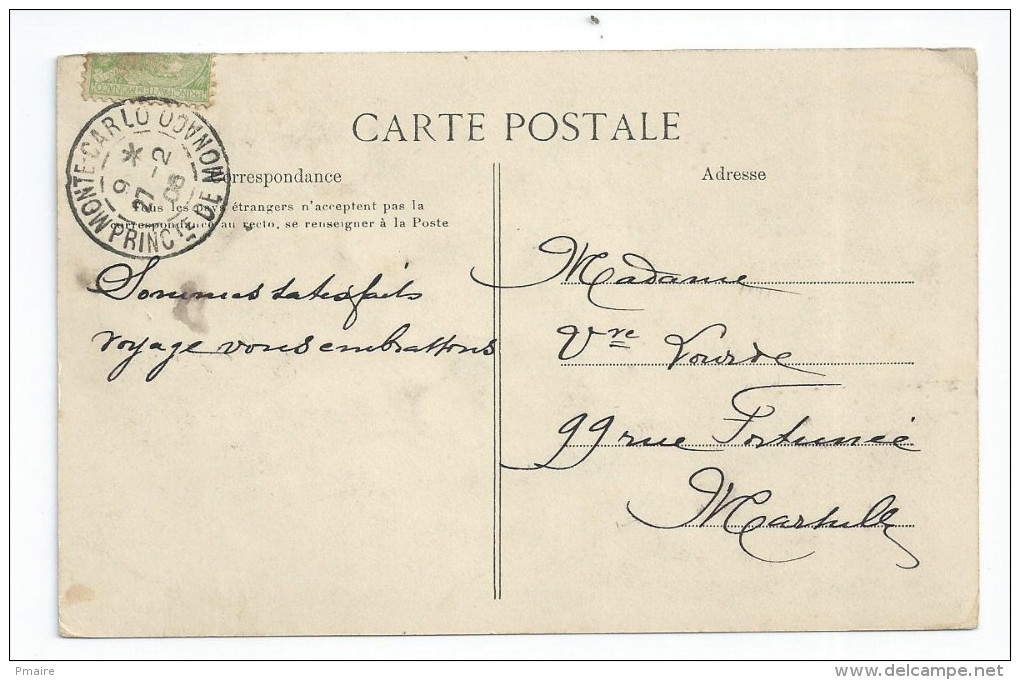 CARTE POSTALE
MONTE-CARLO
PRINCTÉ DE MONACO
9 *
27 - 2
08
Correspondance
Tous les pays étrangers n'acceptent pas la
correspondance au recto, se renseigner à la Poste
Sommes satisfaits
voyage vous embrassons
Adresse
Madame
Vve
99 rue Fortunée
Marseille
Pmaire
www.delcampe.net